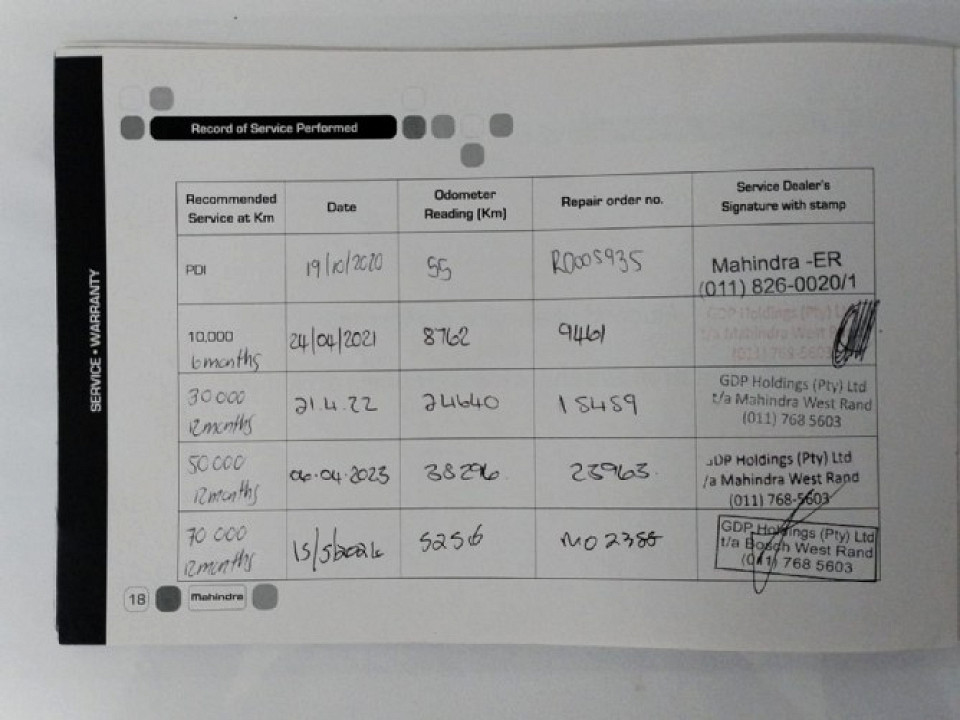 SERVICE • WARRANTY
Record of Service Performed
Recommended Service at Km
Date
Odometer Reading (Km)
Repair order no.
Service Dealer's Signature with stamp
PDI
19/10/2020
55
R0005935
Mahindra -ER
(011) 826-0020/1
10,000
6 months
24/04/2021
8762
9461
GDP Holdings (Pty) L
t/a Mahindra West R
(011) 768-560
30 000
12 months
21.4.22
24640
15459
GDP Holdings (Pty) Ltd
t/a Mahindra West Rand
(011) 768 5603
50 000
12 months
06.04.2023
38296
23963
GDP Holdings (Pty) Ltd
/a Mahindra West Rand
(011) 768-5603
70 000
12 months
15/5/2024
52516
GDP Holdings (Pty) Ltd
t/a Bosch West Rand
(011) 768 5603
18
Mahindra